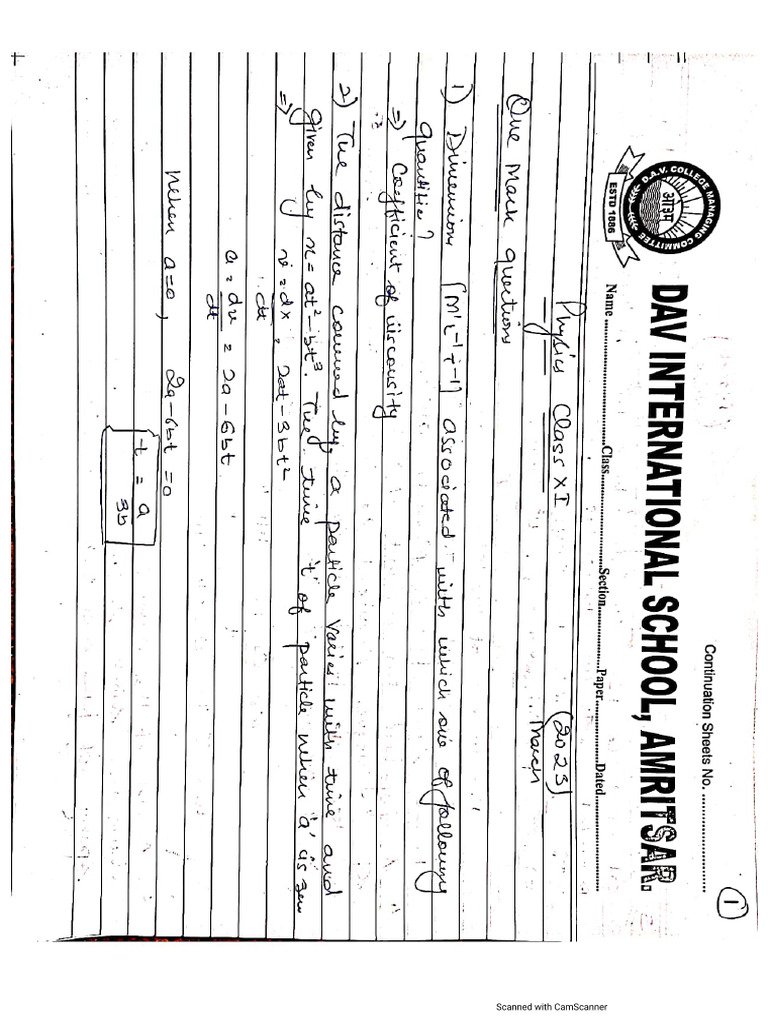 Continuation Sheets No. ........................
1
DAV INTERNATIONAL SCHOOL, AMRITSAR.
D.A.V. COLLEGE MANAGING COMMITTEE
ओ३म्
ESTD 1886
Name ..............................Class..............................Section......................Paper......................Dated......................
Physics Class XI
(2023)
March
One Mark questions
1) Dimension [M¹L⁻¹T⁻¹] associated with which one of following
quantities?
⇒ Coefficient of viscousity
2) The distance covered by a particle varies with time and
given by x = at² - bt³. The time 't' of particle when 'a' is zero
⇒ v = dx/dt = 2at - 3bt²
a = dv/dt = 2a - 6bt
When a=0, 2a - 6bt = 0
t = a/3b
Scanned with CamScanner